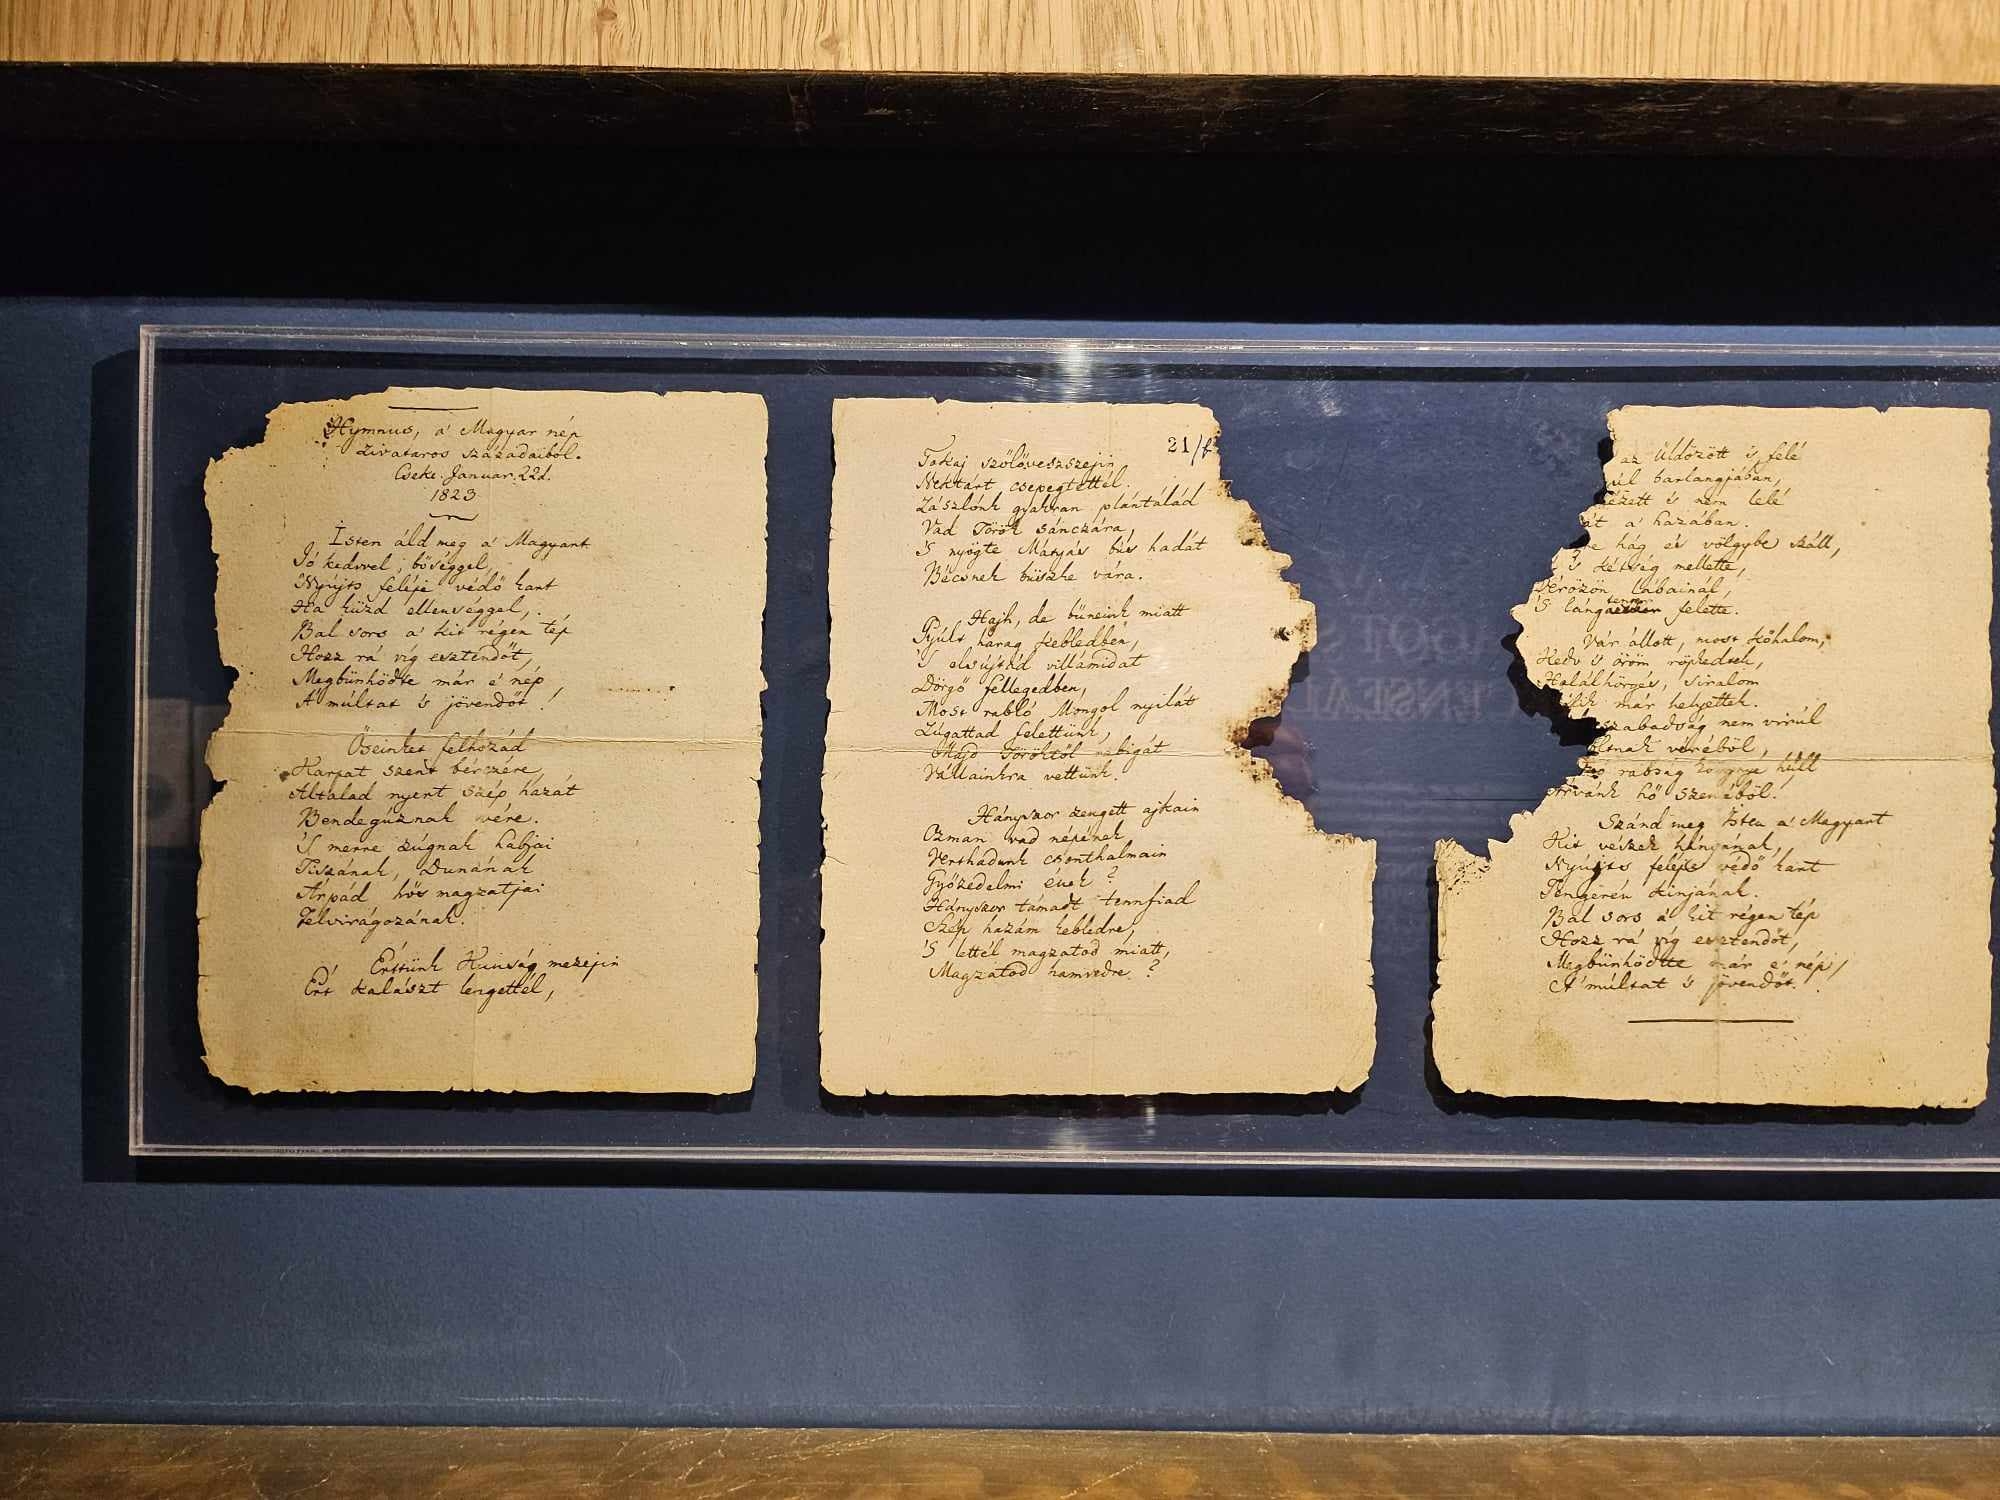 Hymnus, a' Magyar nép
zivataros századaiból.
Cseke. Januar. 22d.
1823
Isten áld meg a' Magyart
Jó kedvvel, bőséggel,
Nyújts feléje védő kart
Ha küzd ellenséggel,
Bal sors a' kit régen tép
Hozz rá víg esztendőt,
Megbünhödte már e' nép
A' múltat 's jövendőt!
Őseinket felhozád
Kárpat szent bérczére
Általad nyert szép hazát
Bendegúznak vére.
'S merre zúgnak habjai
Tiszának, Dunának
Árpád hős magzatjai
Felvirágozának.
Értünk Kunság mezején
Ért kalászt lengettél,
21/b
Tokaj szőlővesszején
Nektárt csepegtettél.
Zászlónk gyakran plántálád
Vad Török sánczára,
'S nyögte Mátyás bús hadát
Bécsnek büszke vára.
Hajh, de bűneink miatt
Gyúlt harag kebledben,
'S elsújtád villámidat
Dörgő fellegedben,
Most rabló Mongol nyilát
Zúgattad felettünk,
Majd Töröktől rabigát
Vállainkra vettünk.
Hányszor zengett ajkain
Ozman vad népének
Verthadunk csonthalmain
Győzedelmi ének?
Hányszor támadt tennfiad
Szép hazám kebledre,
'S lettél magzatod miatt,
Magzatod hamvedre?
az üldözött 's felé
barlangjában,
nézett 's nem lelé
a' hazában.
hág és völgybe száll,
's kétség mellette,
Vérözön lábainál,
'S lángtenger felette.
Vár állott, most kőhalom,
Kedv 's öröm röpkedtek,
Halálhörgés, siralom
már helyettek.
szabadság nem virúl
véréből,
rabság könnye hull
hő szeméből.
Szánd meg Isten a' Magyart
Kit vészek hányának,
Nyújts feléje védő kart
Tengerén kínjának.
Bal sors a' kit régen tép
Hozz rá víg esztendőt,
Megbünhödte már e' nép
A' múltat 's jövendőt.